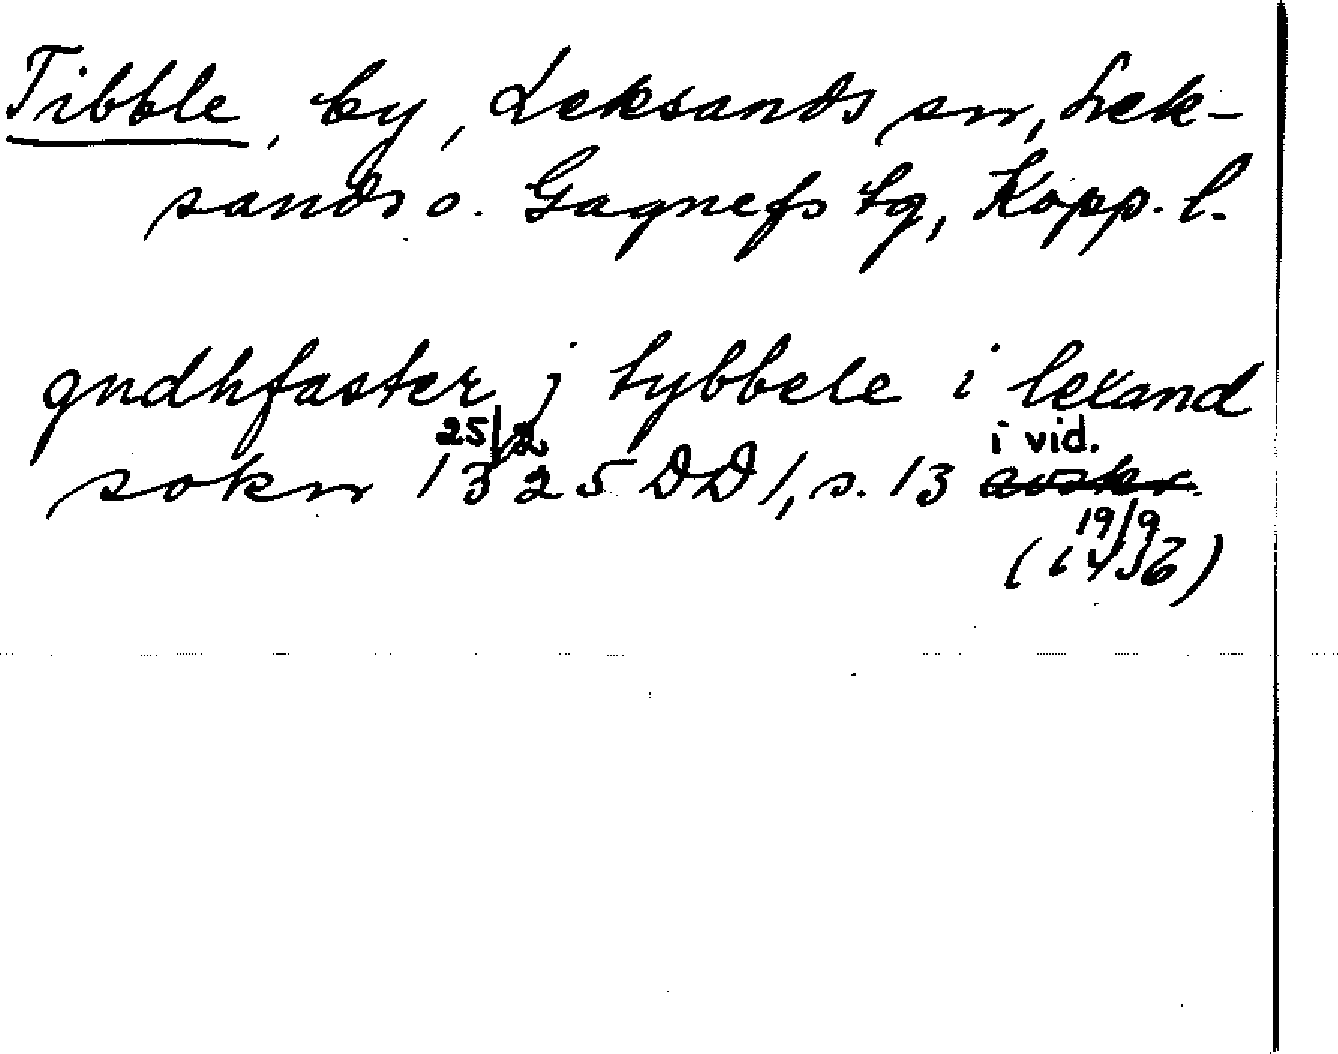 Tibble, by, Leksands sn, Lek-
sands o. Gagnefs tg, Kopp. l.
gudhfaster j tybbele i lexand
25/2 i vid.
sokn 1325 DD 1, s. 13 avskr.
19/9
(1436)